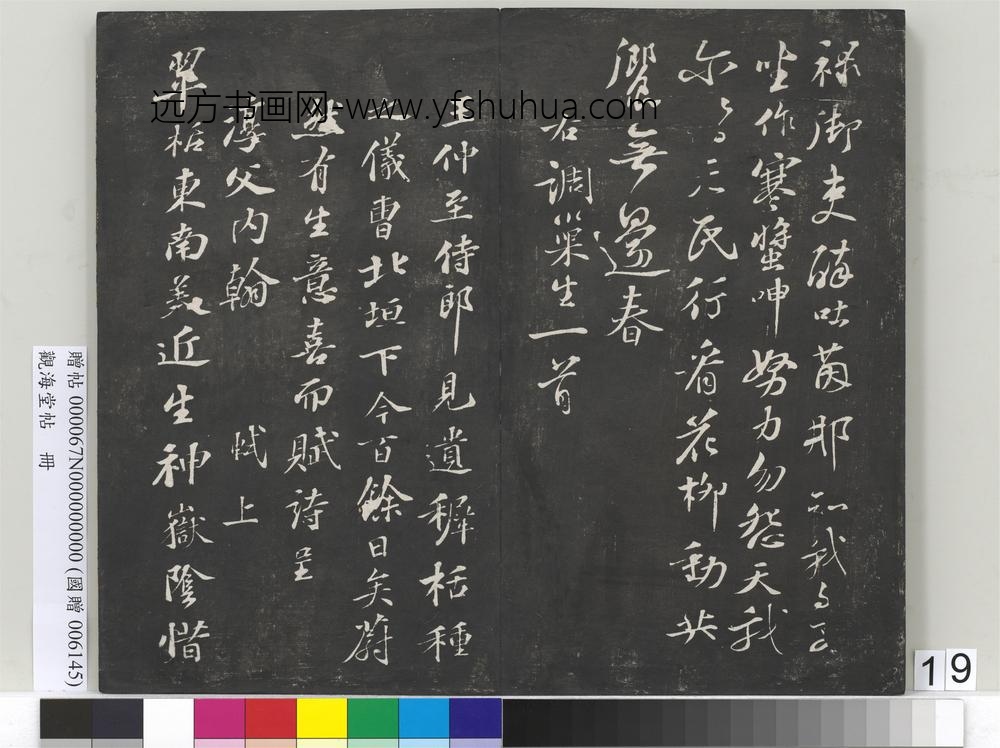 祿御史醉吐茵耶和我與子
坐作寒蛩呻努力勿怨天我
爾與三民行看花柳動共
饗無邊春
右調巢生一首
王仲至侍郎見遺穉栝種
之儀曹北垣下今百餘日矣蔚
然有生意喜而賦詩呈
淳父內翰 軾上
翠栝東南美近生神嶽陰惜
远方书画网-www.yfshuhua.com
贈帖 000067N000000000 (國贈 006145)
觀海堂帖 冊
19